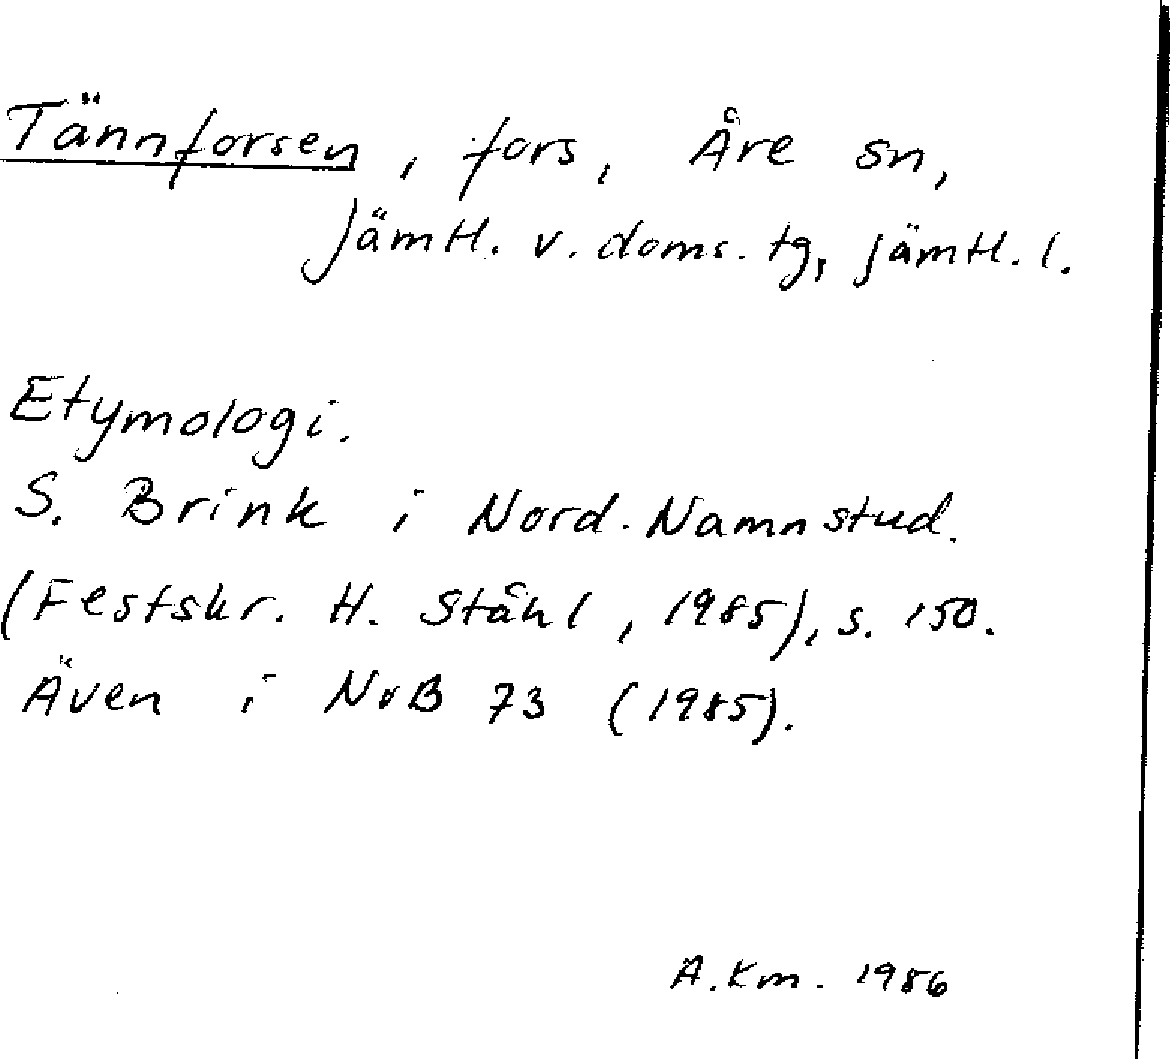 Tännforsen, fors, Åre sn,
Jämtl. v. doms. tg, Jämtl. l.
Etymologi.
S. Brink i Nord. Namnstud.
(Festskr. H. Ståhl, 1985), s. 150.
Även i NoB 73 (1985).
A. Km. 1986